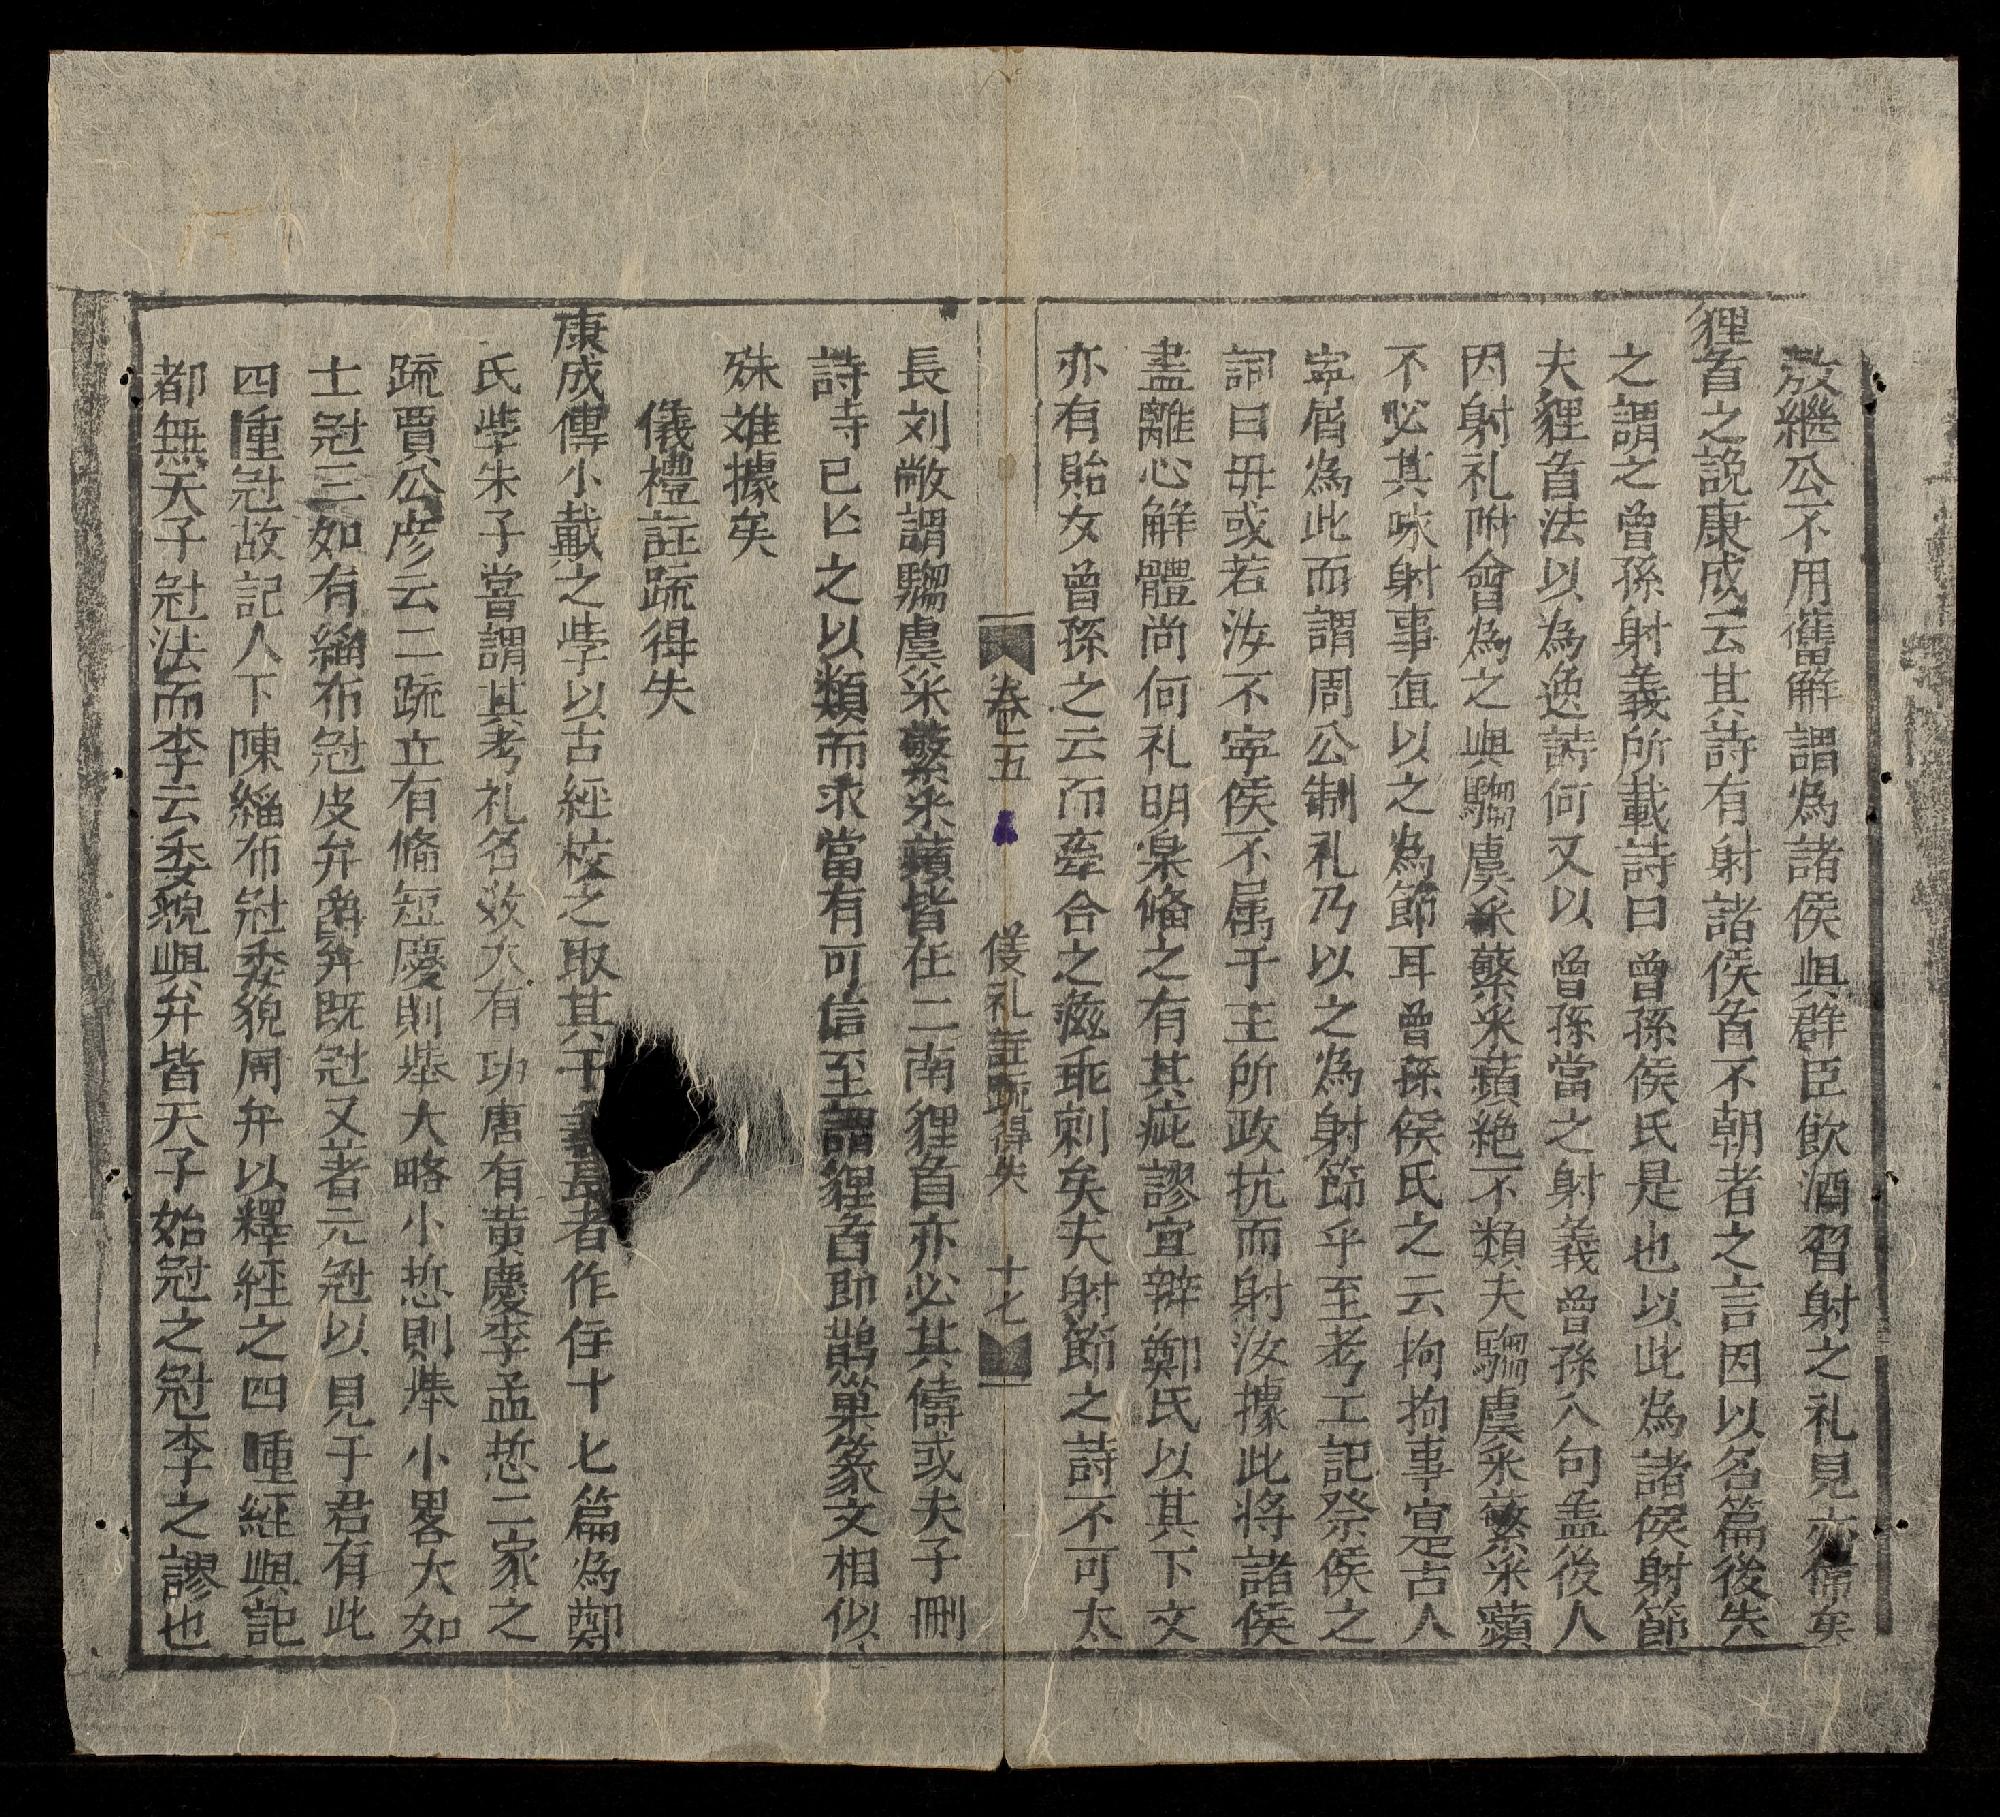 敖繼公不用舊解謂為諸侯與群臣飲酒習射之礼見亦備矣
貍首之說康成云其詩有射諸侯首不朝者之言因以名篇後失
之謂之曾孫射義所載詩曰曾孫侯氏是也以此為諸侯射節
夫貍首法以為逸詩何又以曾孫當之射義曾孫八句盖後人
因射礼附會為之與騶虞采蘩采蘋絶不類夫騶虞采蘩采蘋
不必其咏射事直以之為節耳曾孫侯氏之云拘拘事寔古人
寧屑為此而謂周公制礼乃以之為射節乎至考工記祭侯之
詞曰毋或若汝不寧侯不属于王所故抗而射汝據此将諸侯
盡離心解體尚何礼明樂備之有其疵謬宜辯鄭氏以其下文
亦有貽女曾孫之云而牽合之兹乖刺矣夫射節之詩不可太
卷五　儀礼註疏得失　十七
長刘敞謂騶虞采蘩采蘋皆在二南貍首亦必其儔或夫子刪
詩寺已亡之以類而求當有可信至謂貍首即鵲巢篆文相似
殊难據矣
儀禮註疏得失
康成傳小戴之斈以古經校之取其于義長者作住十七篇為鄭
氏斈朱子嘗謂其考礼名数大有功唐有黄慶李孟悊二家之
疏賈公彦云二疏立有脩短慶則举大略小悊則举小畧大如
士冠三如有緇布冠皮弁爵弁既冠又著元冠以見于君有此
四種冠故記人下陳緇布冠委貌周弁以釋經之四種經與記
都無天子冠法而李云委貌與弁皆天子始冠之冠李之謬也